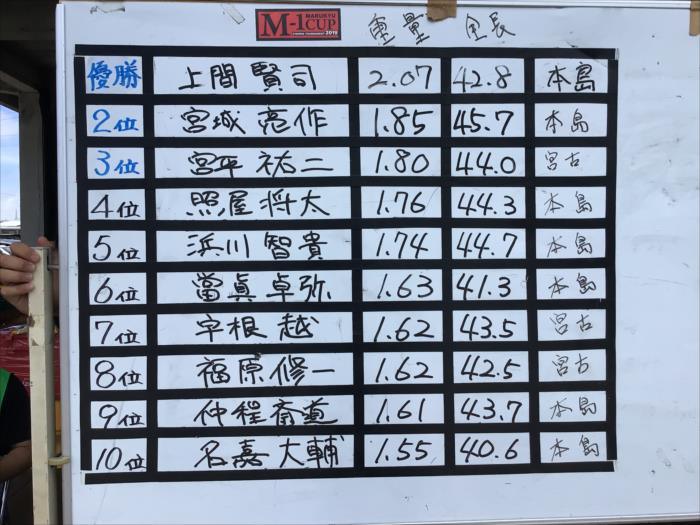 MARUKYU
M-1CUP
2019
重量 全長
優勝 上間賢司 2.07 42.8 本島
2位 宮城亮作 1.85 45.7 本島
3位 宮平祐二 1.80 44.0 宮古
4位 照屋将太 1.76 44.3 本島
5位 浜川智貴 1.74 44.7 本島
6位 當眞卓弥 1.63 41.3 本島
7位 平根越 1.62 43.5 宮古
8位 福原修一 1.62 42.5 宮古
9位 仲程斎道 1.61 43.7 本島
10位 名嘉大輔 1.55 40.6 本島